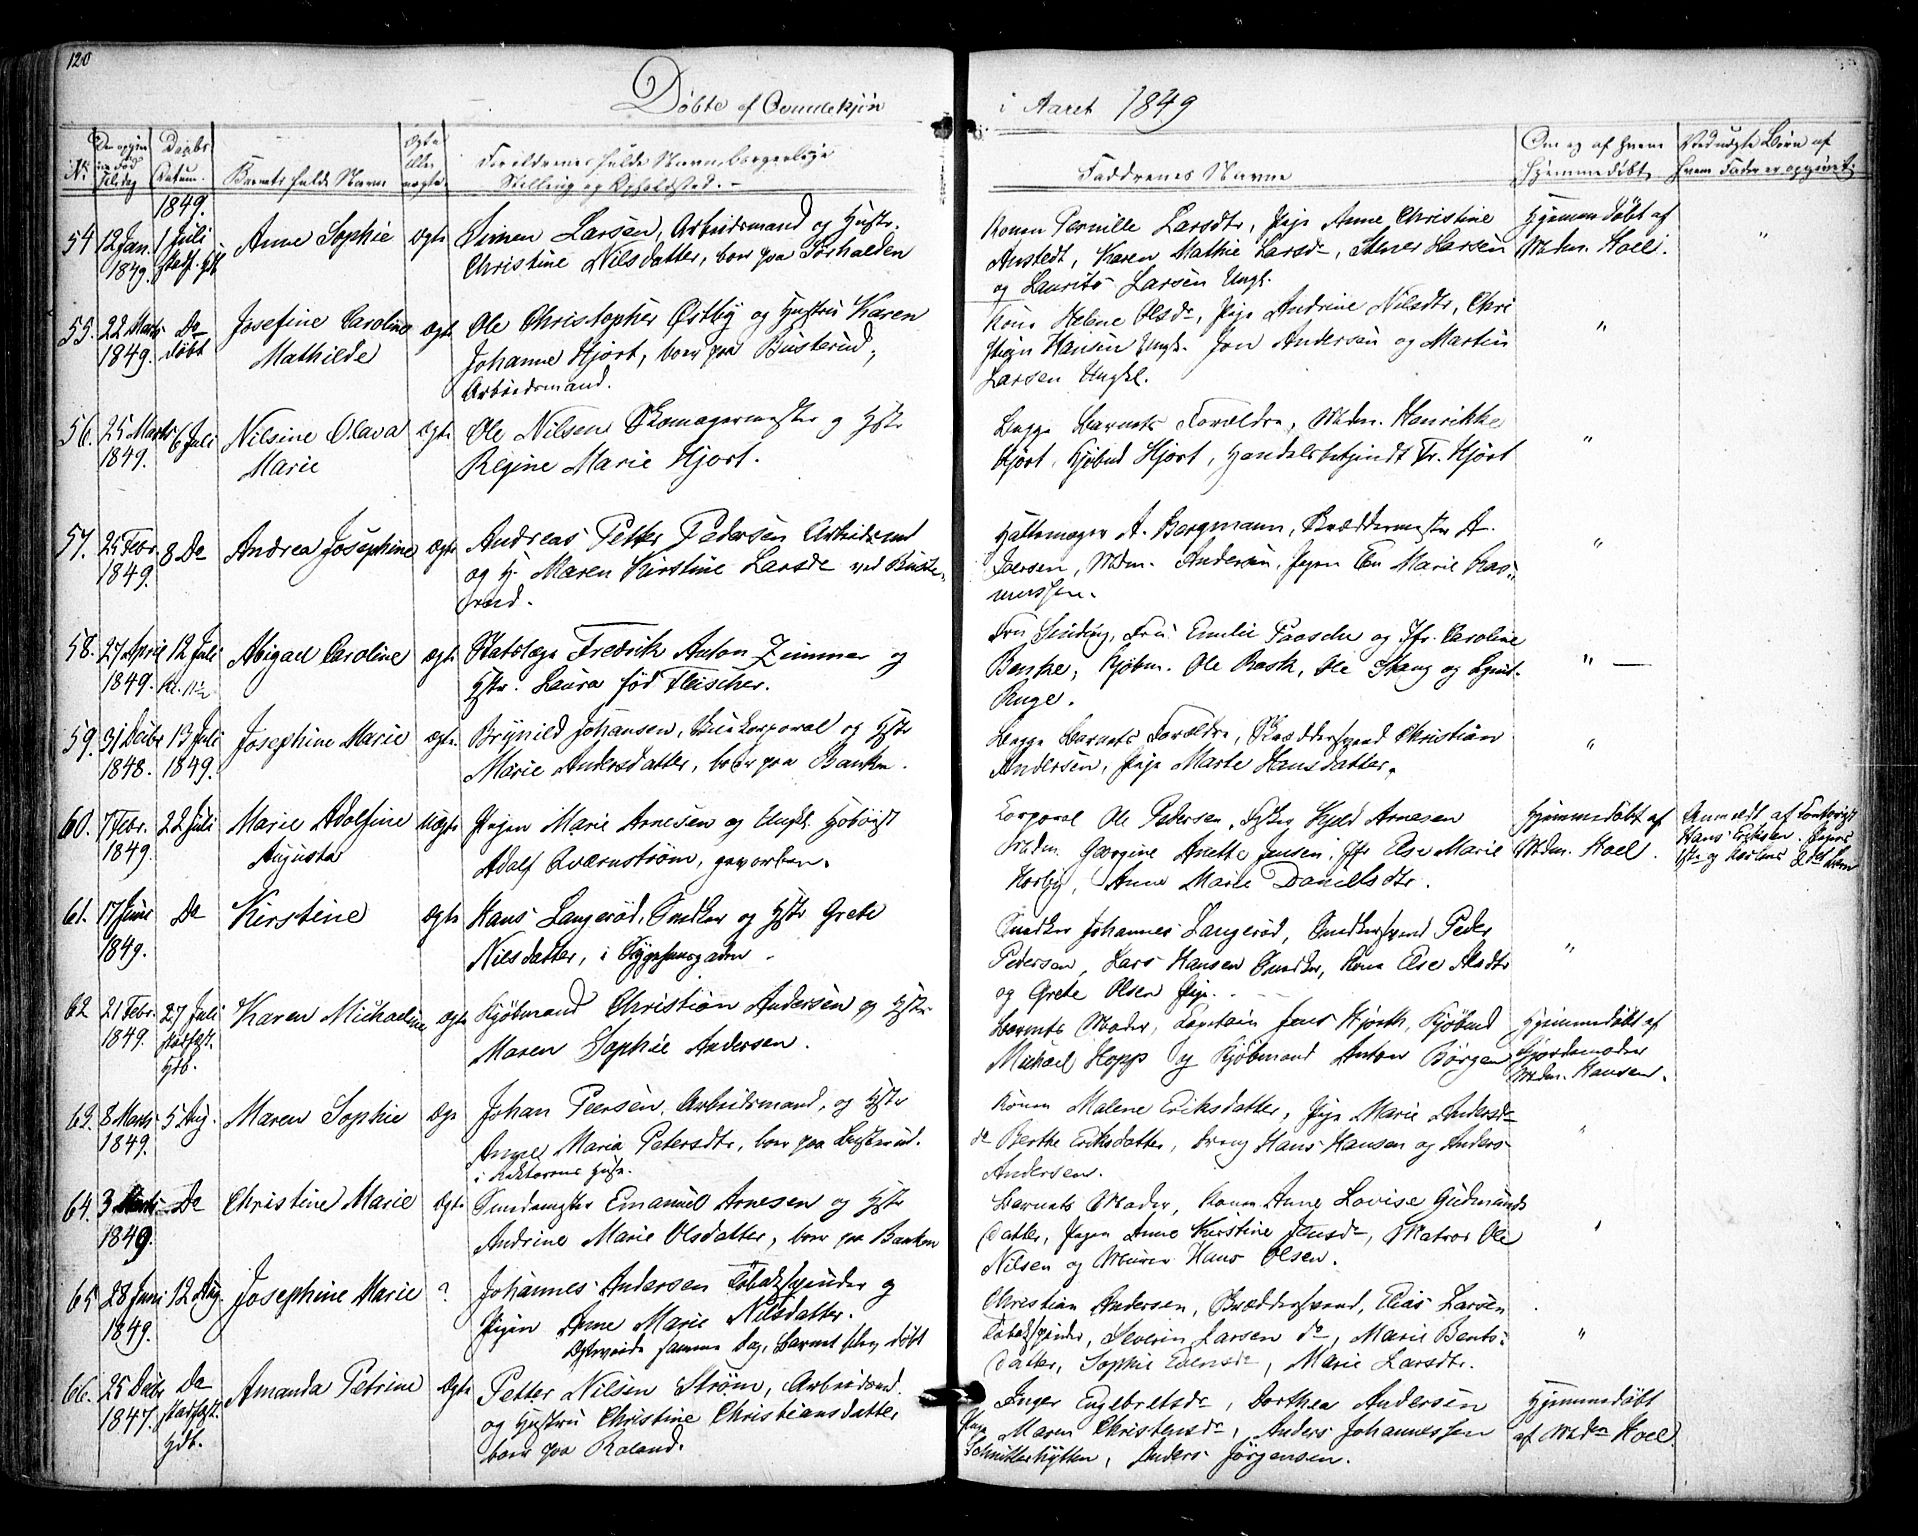 120
Døbte af Qvindekjøn
i Aaret 1849
No
Daabs Datum.
Barnets fulde Navn
Ægte eller uægte
Forældrenes fulde Navn, borgerlige
Stilling og Opholdsted.
Faddrenes Navne
Om og af hvem
hjemmedøbt
Ved uægte Børn af
hvem Fader er opgivet
1849.
54 12 Jan. 1849. 1 Juli Anne Sophie Ægte Simen Larsen, Arbeidsmand og Hustr.
Christine Nilsdatter, boer paa Sørhalden
Konen Pernille Larsdtr, Pige Anne Christine
Anstedt, Karen Mathie Larsd, Larsen
og Laurits Larsen Ungk.
Hjemmedøbt af
Mdm. Hoel.
"
55. 22 Marts 1849. Do døbt Josefine Caroline
Mathilde
ægte Ole Christopher Østby og Hustru Karen
Johanne Hjort, boer paa Busterud,
Arbeidsmand.
Kone Helene Olsd, Pige Andrine Nilsdtr, Chri
stian Hansen Ungk. Jon Andersen og Martin
Larsen Ungkl.
"
56. 25 Marts 1849. 6 Juli Nilsine Olava
Marie
ægte Ole Nilsen Skomagermester og Hstr
Regine Marie Hjort.
Begge Barnets Forældre, Mdm. Henrikke
Hjort, Kjøbmd Hjort, Handelsbetjendt Fr. Hjort
"
57. 25 Febr. 1849. 8 Do Andrea Josephine ægte Andreas Petter Pedersen Arbeidsmd
og H. Maren Kirstine Larsd ved Buste-
rud.
Hattemager A. Bergmann, Skræddermester A.
Iversen, Mdm. Andersen, Pigen Marie Ras-
mussen.
"
58. 27 April 1849. 12 Juli Abigael Caroline ægte Fredrik Anton Zimmer og
Hstr. Laura fød Fleischer.
Fru Sinding, Fru Emilie Paasche og Jfr. Caroline
Banke, Kjøbm. Ole Rask, Ole Stang og
Ruge.
"
59. 31 Decbr 1848. 13 Juli 1849. Josephine Marie ægte. Brynild Johansen, og Hstr
Marie Andersdatter, boer paa Banken.
Begge Barnets Forældre, Skræddersvend Christian
Andersen, Pige Marte Hansdatter.
"
60. 7 Febr. 1849. 22 Juli Marie Adolfine
Augusta
uægte Pigen Marie Arnesen og Ungkl. Hoboist
Adolf Qværnstrøm, geworben.
Corporal Ole Pedersen, Arnesen
Mdm. Georgine Anette Jensen, Jfr Else Marie
Horby, Anne Marie Danielsdtr.
Hjemmedøbt af
Mdm. Hoel.
Anmeldt af
Hans Eriksen.
61. 17 Juni 1849. Do Kirstine Ægte Hans Langerød, Snedker og Hstr Grete
Nilsdatter, i
Snedker Johannes Langerød, Snedkersvend Peder
Pedersen, Lars Hansen Snedker, Kone Else
og Grete Olsen Pige.
"
62 21 Febr. 1849. 27 Juli stadfæst. Hdb. Karen Michaeline ægte Kjøbmand Christian Andersen og Hstr
Maren Sophie Andersen.
Barnets Moder, Captain Jens Hjorth, Kjøbmd
Michael Hopp og Kjøbmand Anton Børgen
Hjemmedøbt af
Gjordemoder
Mdm. Hansen.
63. 8 Marts 1849. 5 Aug. Maren Sophie Johan Peersen, Arbeidsmand, og Hstr
Anne Maria Petersdtr, boer paa Busterud.
i Rektorens Huse.
Konen Malene Eriksdatter, Pige Marie Andersd
do Berthe Eriksdatter, Dreng Hans Hansen og Anders
Andersen.
"
64. 3 Marts 1849. Do Christine Marie Ægte Emanuel Arnesen og Hstr
Andrine Marie Olsdatter, boer paa Banken
Barnets Moder, Konen Anne Lovise Gudmunds
datter, Pigen Anne Kirstine Jensd, Matros Ole
Nilsen og Murer Hans Olsen.
"
65 28 Juni 1849. 12 Aug. Josephine Marie ? Johannes Andersen Tobakspinder og
Pigen Anne Marie Nilsdatter.
Ægteviede samme Dag, Barnet blev døbt
Christian Andersen, Skræddersvend, Elias Larsen
Tobakspinder, Severin Larsen do, Marie Bents-
datter, Sophie Evensd, Marie Larsdtr.
"
66. 25 Decbr 1847. Do stadfæst. Hdb. Amanda Petrine Ægte Petter Nilsen Strøm, Arbeidsmd.
og Hustru Christine Christiansdatter
boer paa Roland.
Inger Engebretsd, Dorthea Andersen
Pige Maren Christensd, Anders Johannessen
Schnitlerhytten, Anders Jørgensen.
Hjemmedøbt
af Mdm Hoel.